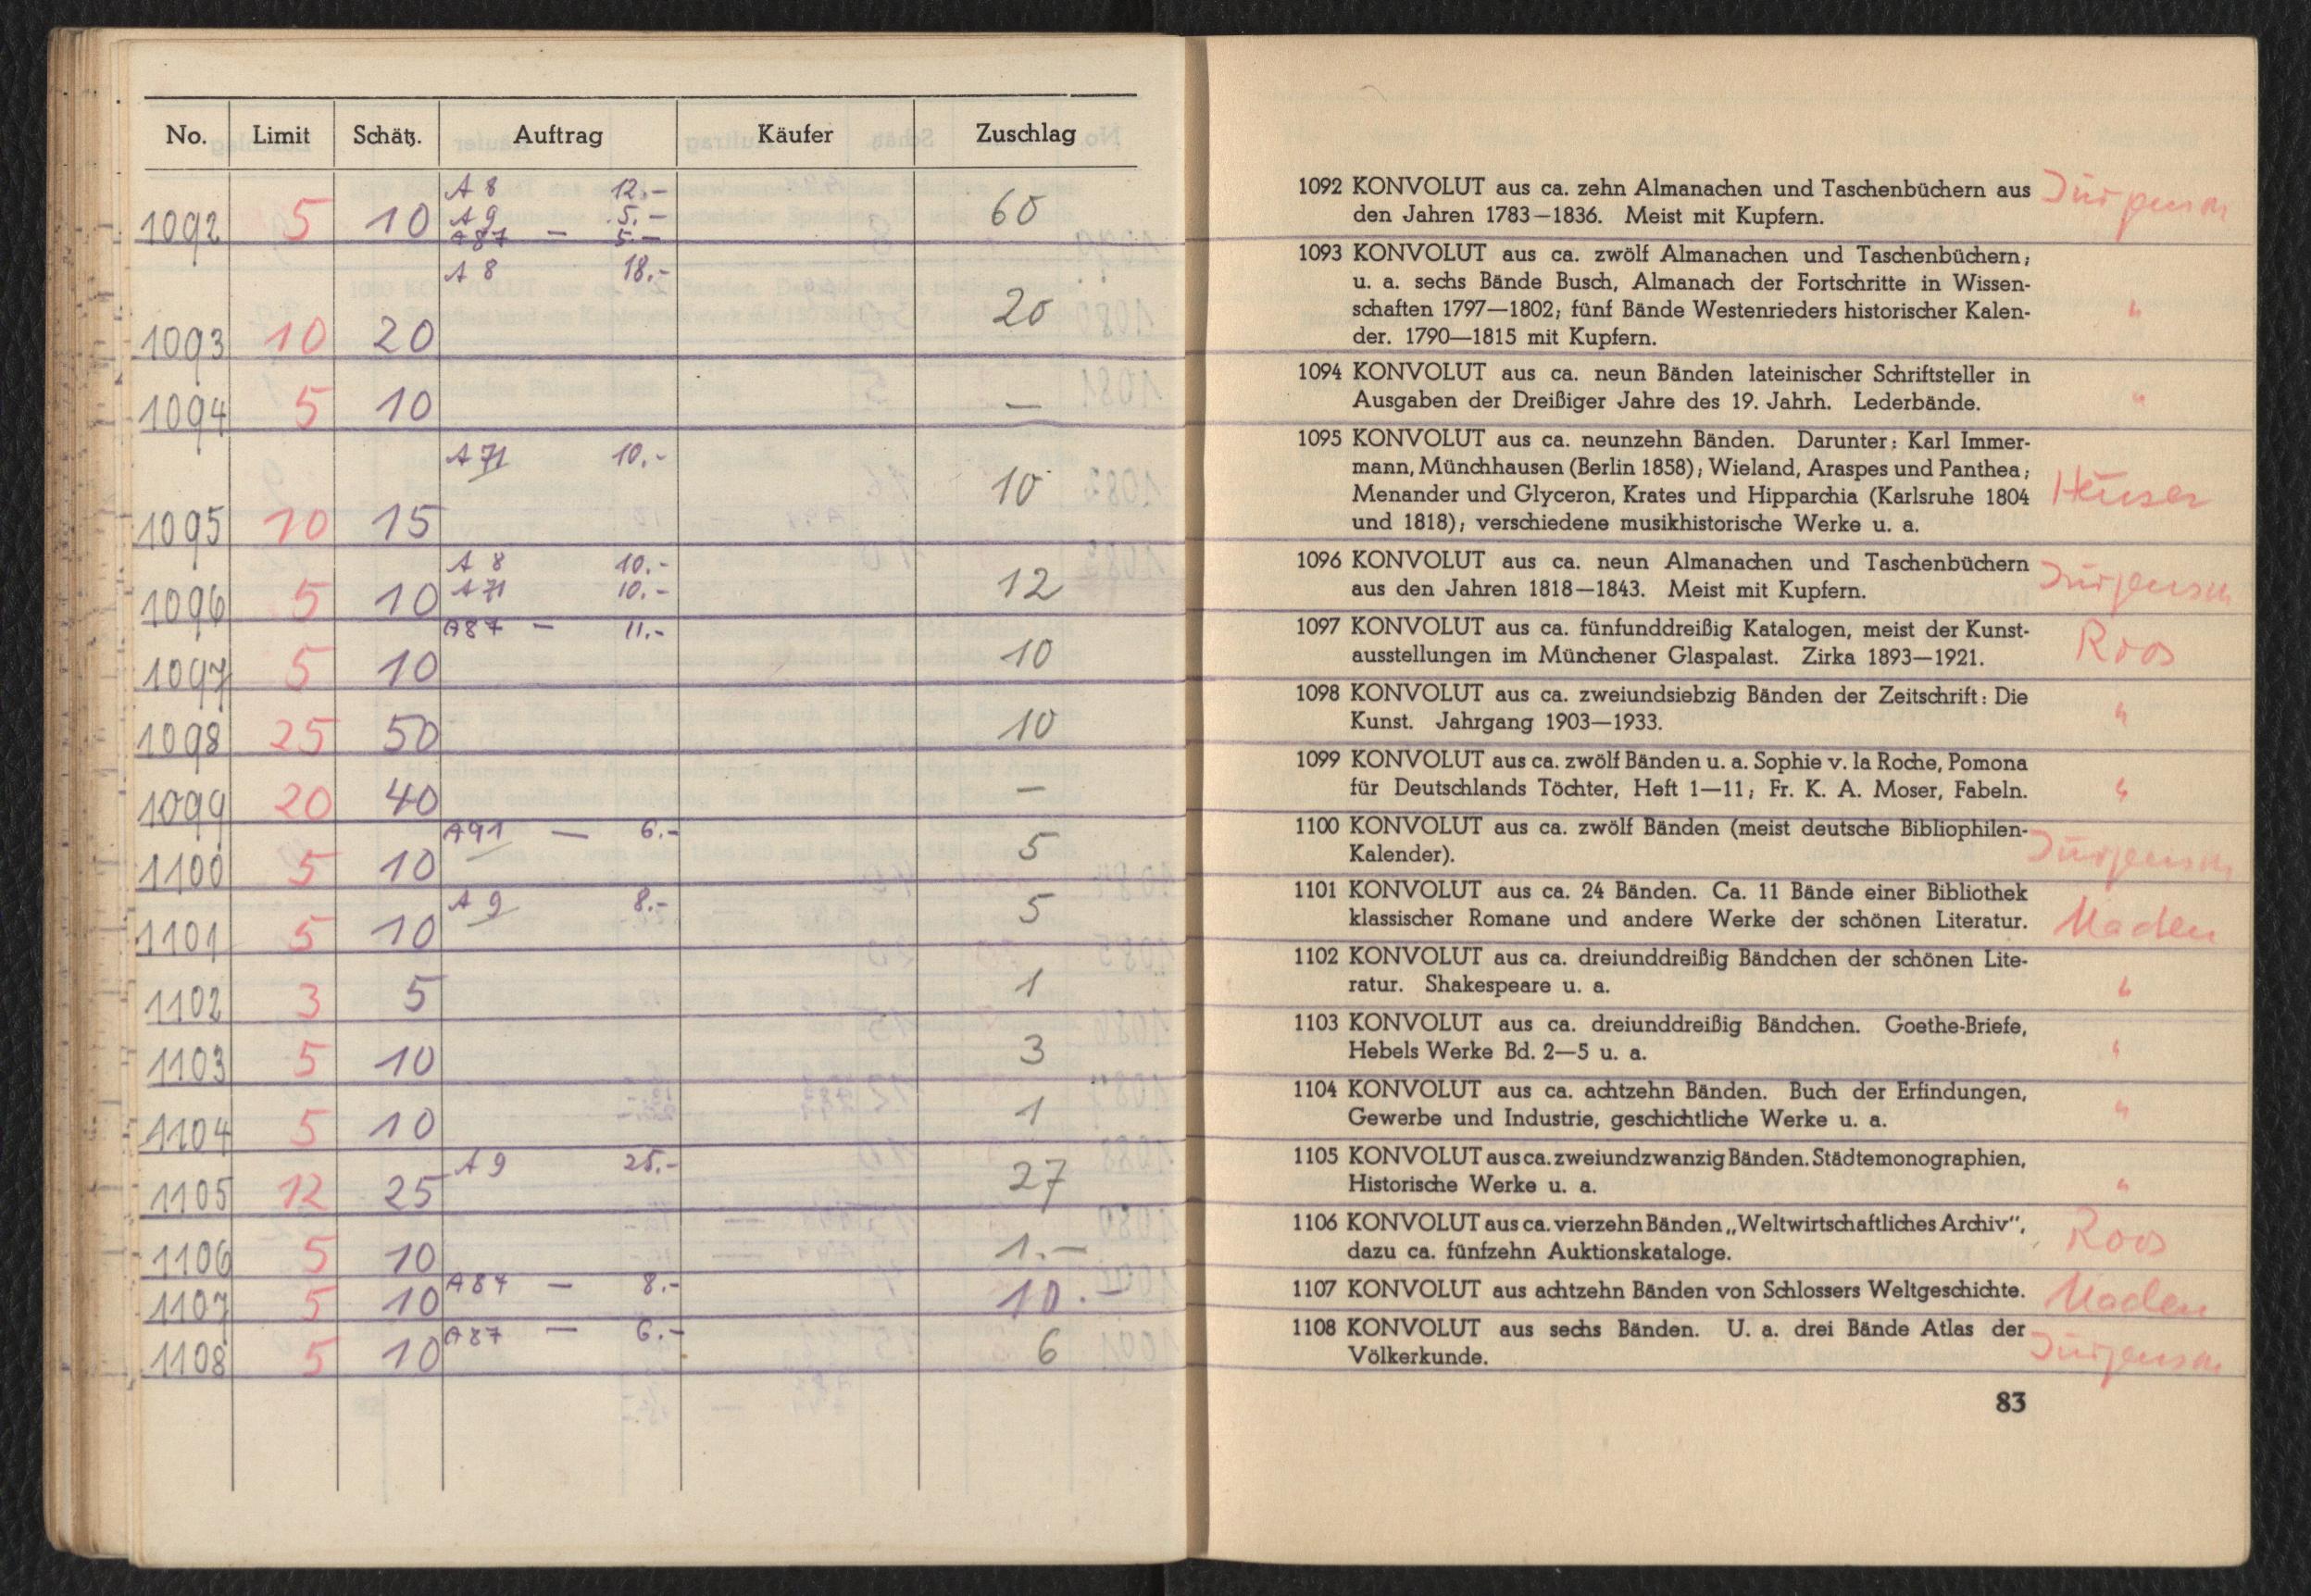 No. Limit Schätz. Auftrag Käufer Zuschlag
A 8 12.-
1092 5 10 A 9 5.- 60
A87 — 5.-
A 8 18.-
1093 10 20 20
1094 5 10 —
A 71 10.-
1095 10 15 10
A 8 10.-
1096 5 10 A 71 10.- 12
A87 — 11.-
1097 5 10 10
1098 25 50 10
1099 20 40 —
A91 — 6.-
1100 5 10 5
A 9 8.-
1101 5 10 5
1102 3 5 1
1103 5 10 3
1104 5 10 1
A 9 25.-
1105 12 25 27
1106 5 10 1.—
1107 5 10 A87 — 8.- 10.—
1108 5 10 A87 — 6.- 6
1092 KONVOLUT aus ca. zehn Almanachen und Taschenbüchern aus
den Jahren 1783—1836. Meist mit Kupfern.
1093 KONVOLUT aus ca. zwölf Almanachen und Taschenbüchern;
u. a. sechs Bände Busch, Almanach der Fortschritte in Wissen-
schaften 1797—1802; fünf Bände Westenrieders historischer Kalen- "
der. 1790—1815 mit Kupfern.
1094 KONVOLUT aus ca. neun Bänden lateinischer Schriftsteller in
Ausgaben der Dreißiger Jahre des 19. Jahrh. Lederbände. "
1095 KONVOLUT aus ca. neunzehn Bänden. Darunter: Karl Immer-
mann, Münchhausen (Berlin 1858); Wieland, Araspes und Panthea;
Menander und Glyceron, Krates und Hipparchia (Karlsruhe 1804
und 1818); verschiedene musikhistorische Werke u. a.
1096 KONVOLUT aus ca. neun Almanachen und Taschenbüchern
aus den Jahren 1818—1843. Meist mit Kupfern.
1097 KONVOLUT aus ca. fünfunddreißig Katalogen, meist der Kunst- Roos
ausstellungen im Münchener Glaspalast. Zirka 1893—1921.
1098 KONVOLUT aus ca. zweiundsiebzig Bänden der Zeitschrift: Die
Kunst. Jahrgang 1903—1933. "
1099 KONVOLUT aus ca. zwölf Bänden u. a. Sophie v. la Roche, Pomona
für Deutschlands Töchter, Heft 1—11; Fr. K. A. Moser, Fabeln. "
1100 KONVOLUT aus ca. zwölf Bänden (meist deutsche Bibliophilen-
Kalender).
1101 KONVOLUT aus ca. 24 Bänden. Ca. 11 Bände einer Bibliothek
klassischer Romane und andere Werke der schönen Literatur.
1102 KONVOLUT aus ca. dreiunddreißig Bändchen der schönen Lite-
ratur. Shakespeare u. a. "
1103 KONVOLUT aus ca. dreiunddreißig Bändchen. Goethe-Briefe,
Hebels Werke Bd. 2—5 u. a. "
1104 KONVOLUT aus ca. achtzehn Bänden. Buch der Erfindungen,
Gewerbe und Industrie, geschichtliche Werke u. a. "
1105 KONVOLUT aus ca. zweiundzwanzig Bänden. Städtemonographien,
Historische Werke u. a. "
1106 KONVOLUT aus ca. vierzehn Bänden „Weltwirtschaftliches Archiv“, Roos
dazu ca. fünfzehn Auktionskataloge.
1107 KONVOLUT aus achtzehn Bänden von Schlossers Weltgeschichte.
1108 KONVOLUT aus sechs Bänden. U. a. drei Bände Atlas der
Völkerkunde.
83